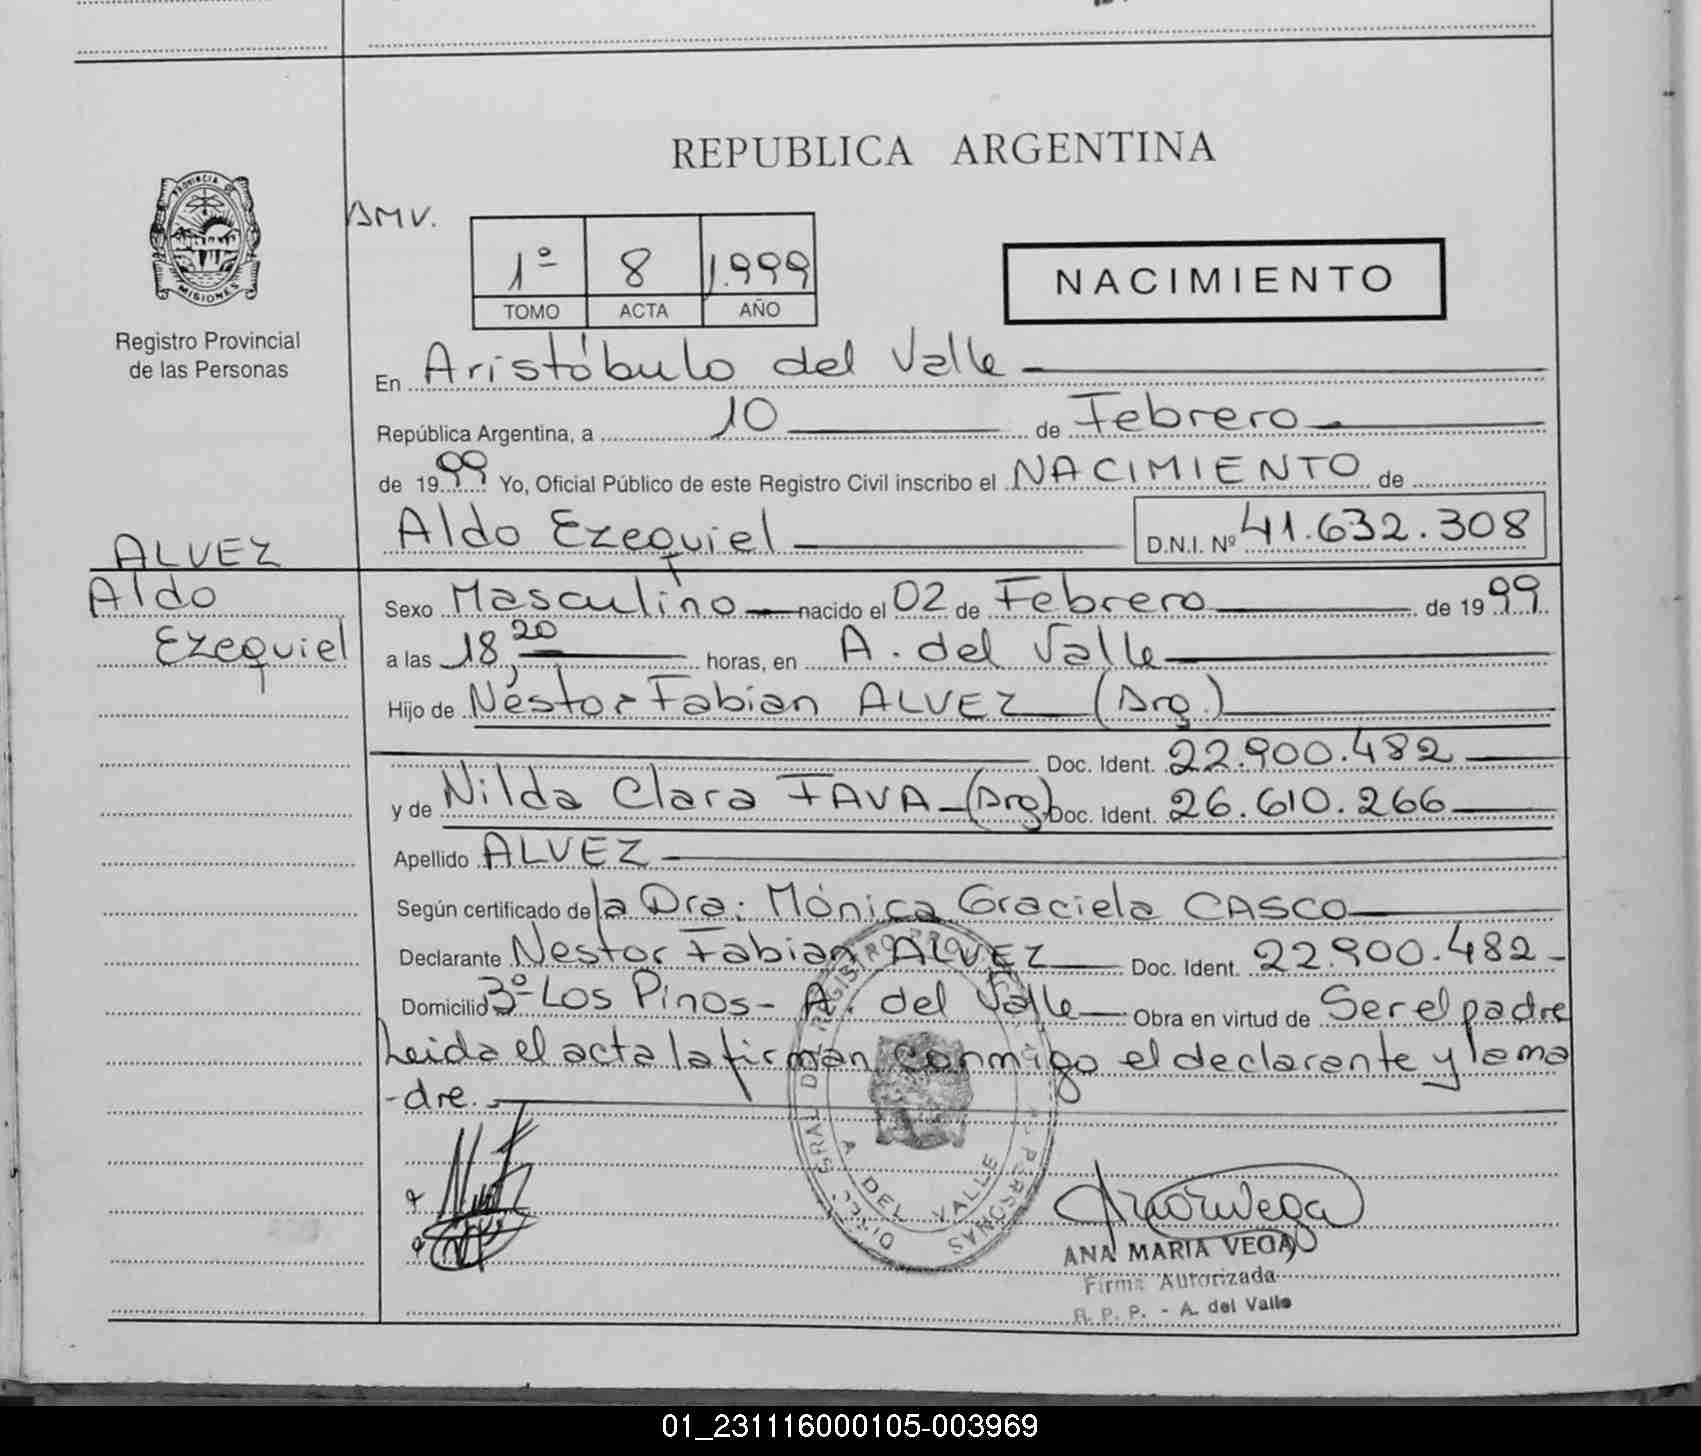 REPUBLICA ARGENTINA
PROVINCIA DE
MISIONES
Registro Provincial
de las Personas
AMV.
1º 8 1.999
TOMO ACTA AÑO
NACIMIENTO
En Aristóbulo del Valle
República Argentina, a 10 de Febrero
de 1999 Yo, Oficial Público de este Registro Civil inscribo el NACIMIENTO de
Aldo Ezequiel D.N.I. Nº 41.632.308
ALVEZ
Aldo
Ezequiel
Sexo Masculino nacido el 02 de Febrero de 1999
a las 18,20 horas, en A. del Valle
Hijo de Néstor Fabian ALVEZ (Arg.)
Doc. Ident. 22.900.482
y de Nilda Clara FAVA-(Arg) Doc. Ident. 26.610.266
Apellido ALVEZ
Según certificado de la Dra: Mónica Graciela CASCO
Declarante Nestor Fabian ALVEZ Doc. Ident. 22.900.482-
Domicilio 3º Los Pinos- A. del Valle Obra en virtud de Ser el padre
Leida el acta la firman conmigo el declarante y la ma
-dre.
A DEL VALLE
PERSONAS
ANA MARIA VEGA
Firma Autorizada
R. P. P. - A. del Valle
01_231116000105-003969